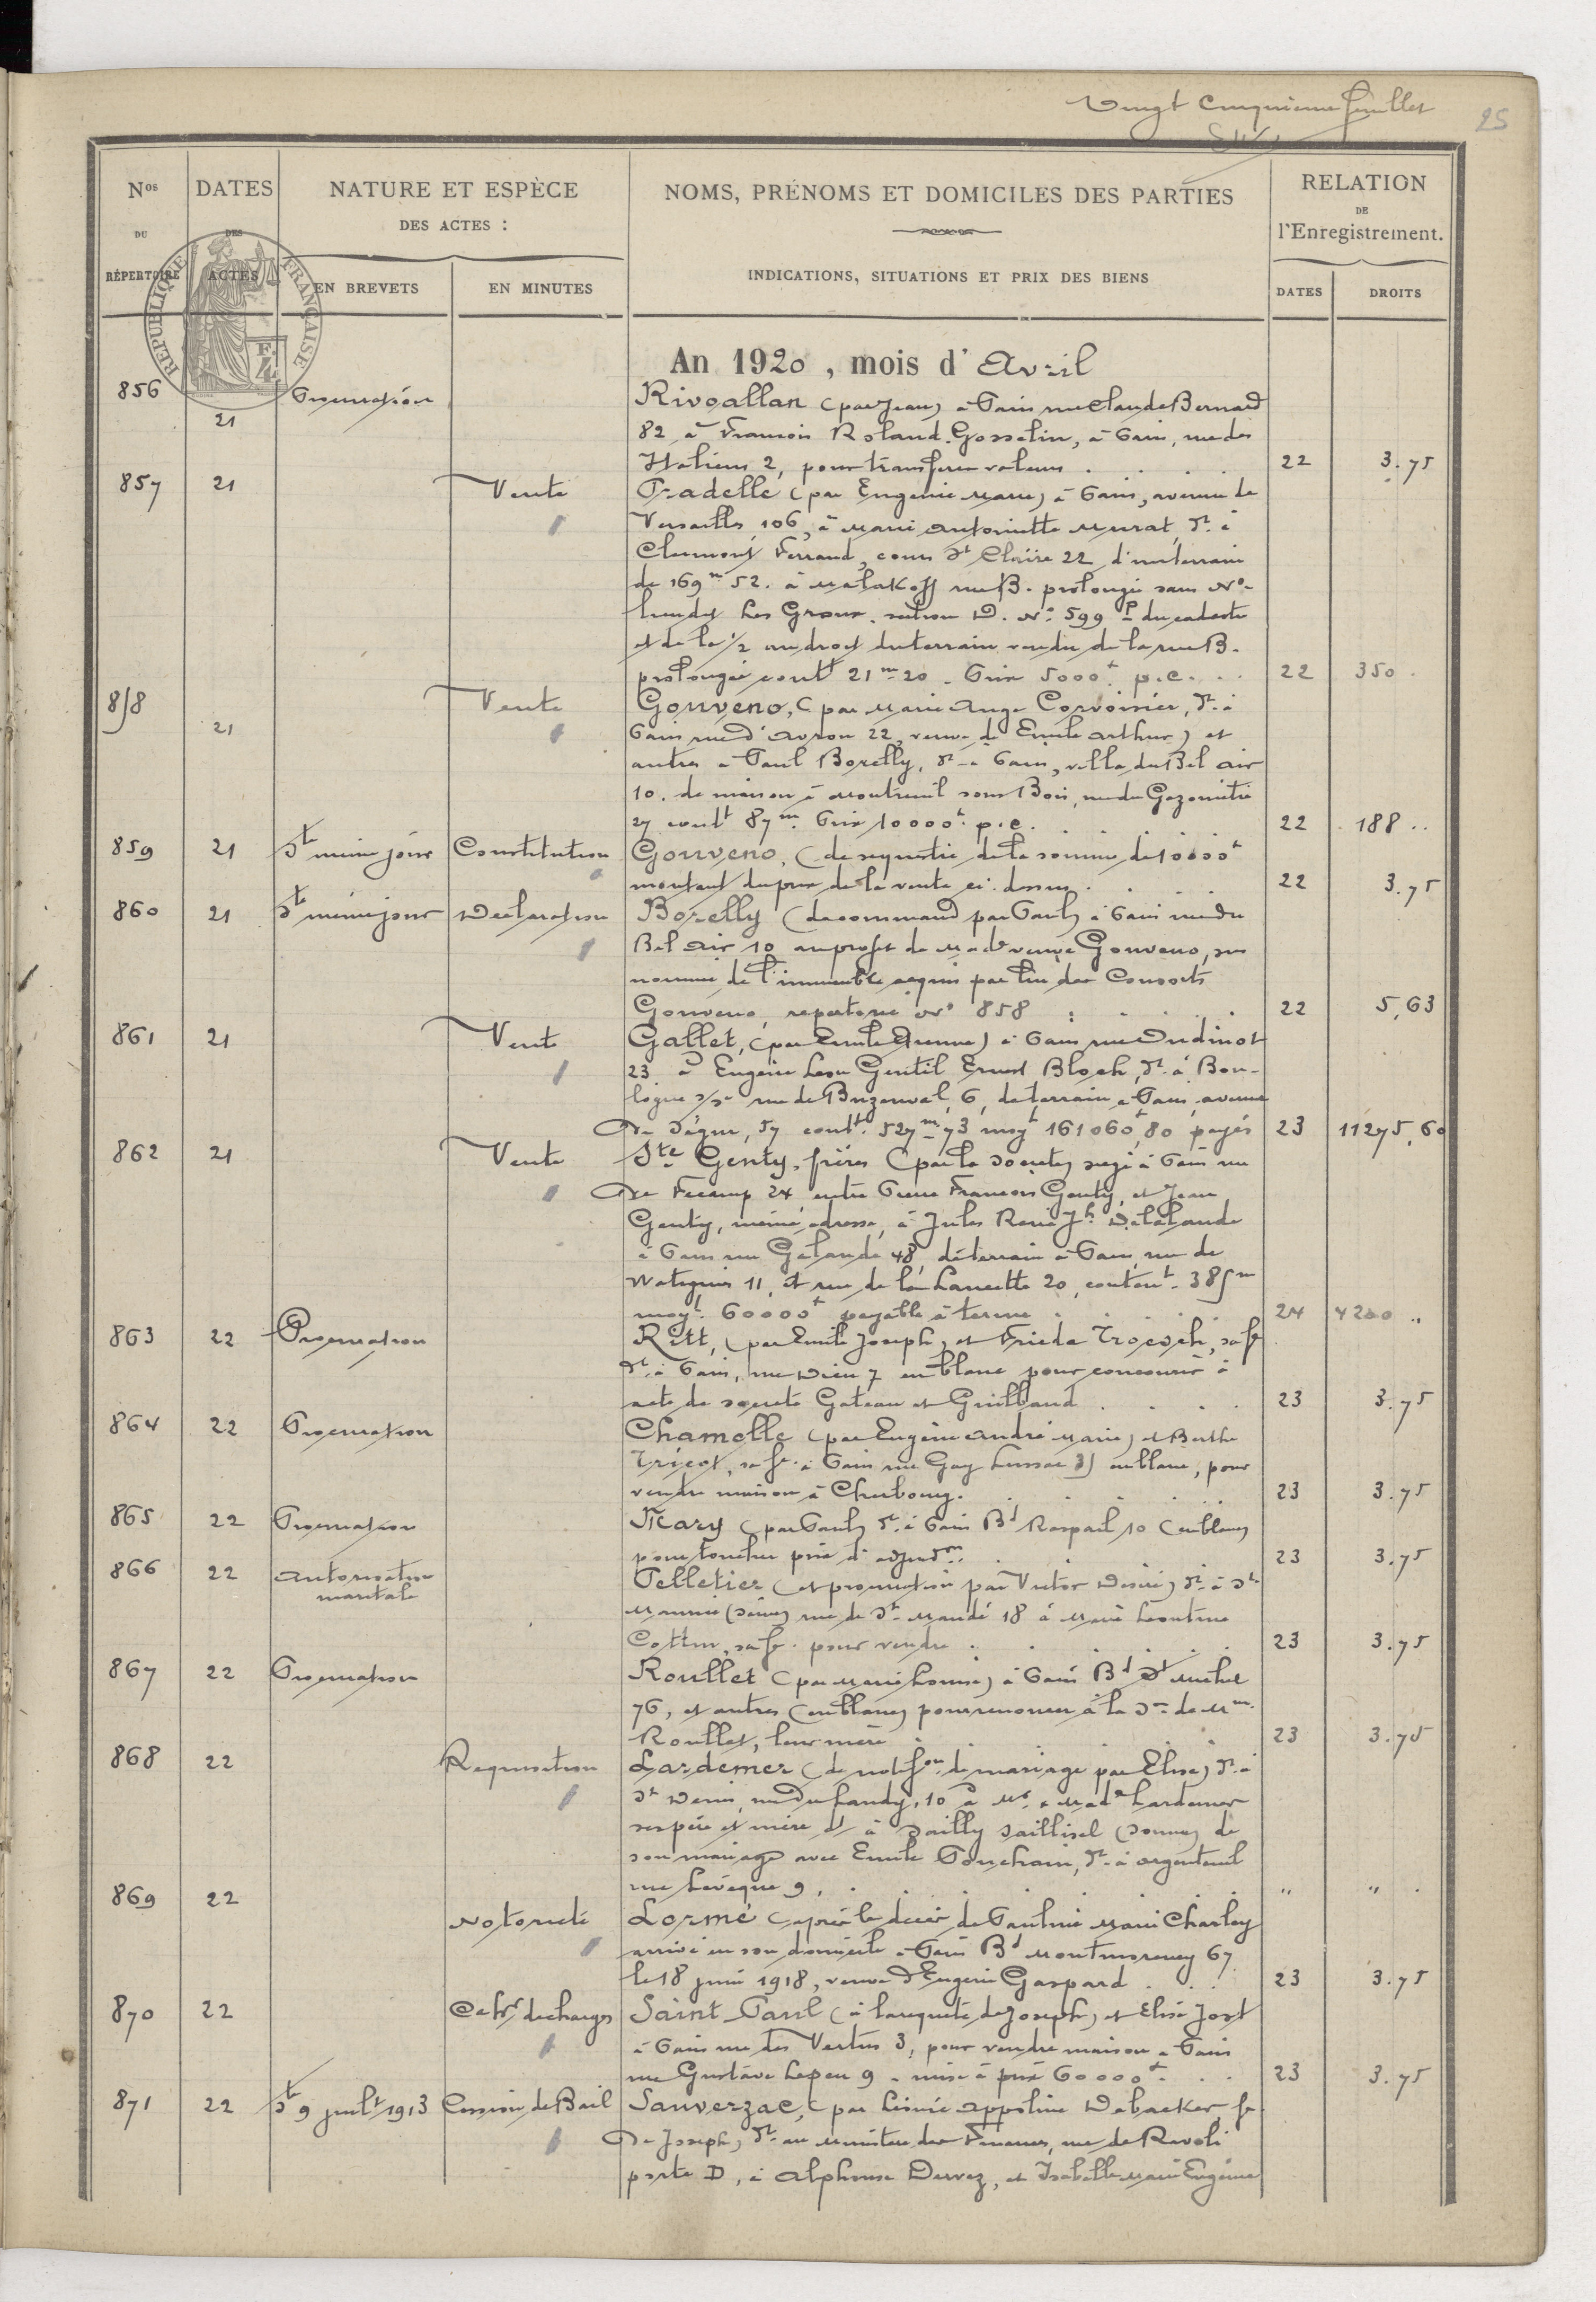 Vingt cinquième feuillet
25
Nos DU RÉPERTOIRE
DATES DES ACTES
NATURE ET ESPÈCE
DES ACTES :
EN BREVETS
EN MINUTES
NOMS, PRÉNOMS ET DOMICILES DES PARTIES
INDICATIONS, SITUATIONS ET PRIX DES BIENS
RELATION
DE
l'Enregistrement.
DATES
DROITS
RÉPUBLIQUE FRANÇAISE
An 1920, mois d'Avril
856 21 Procuration Rivoallan (par Jean) à Paris rue Claude Bernard
82 à François Roland-Gosselin, à Paris, rue des
Italiens 2, pour transférer valeurs . . . 22 3.75
857 21 Vente Pradelle (par Eugénie Marie) à Paris, avenue de
Versailles, 106, à Marie Antoinette Murat, dt à
Clermont Ferrand, cours St Claire 22 d'un terrain
de 169m 52. à Malakoff rue B. prolongée sans No
lieudit Les Groux. section D. No 599 p du cadastre
et de la 1/2 au droit du terrain vendu de la rue B.
prolongée contt 21m 20. Prix 5000f p.c. . . 22 350.
858 21 Vente Gouveno, (par Marie Ange Corvoisier, dt à
Paris rue d'Avron 22, veuve de Emile Arthur) et
autres à Paul Borelly, dt à Paris, villa du Bel air
10. de maison à Montreuil sous Bois, rue du Gazomètre
27 contt 87m. Prix 10000f. p.c. . . . 22 188 ..
859 21 St même jour Constitution Gouveno, (de séquestre de la somme de 10000f
montant du prix de la vente ci. dessus . . . 22 3.75
860 21 St même jour Déclaration Borelly (de command par Paul) à Paris rue du
Bel air 10 au profit de Made veuve Gouveno, sus
nommée de l'immeuble acquis par lui des Consorts
Gouveno, répertoire No 858 . . . 22 5,63
861 21 Vente Gallet, (par Emile Etienne) à Paris rue Oudinot
23 à Eugène Léon Gentil Ernest Bloch, dt à Bou-
logne s/Se rue de Buzenval, 6, de terrain à Paris, avenue
de Ségur, 57 contt 527m 73 moyt 161060f,80 payés 23 11275,60
862 21 Vente Sté Genty, frères (par la société siège à Paris rue
de Fécamp 24, entre Pierre François Genty, et Jean
Genty, même adresse, à Jules René Jh Delalande
à Paris rue Galande 48, de terrain à Paris, rue de
Wattignies 11, et rue de la Lancette 20, content 385m
moyt. 60000f payable à terme . . . 24 4200 "
863 22 Procuration Ritt, (par Emile Joseph, et Frieda Troesch, sa fe
dt à Paris, rue Dieu 7 en blanc pour concourir à
acte de société Gateau et Guilbaud . . . 23 3.75
864 22 Procuration Chamolle (par Eugène André Marie) et Berthe
Tricot, sa fe à Paris rue Gay Lussac en blanc, pour
vendre maison à Cherbourg. . . . 23 3.75
865 22 Procuration Mary (par Paul) dt à Paris Bd Raspail 10 (en blanc)
pour toucher prix d'adjudon . . . 23 3.75
866 22 Autorisation maritale Pelletier (et procuration par Victor Désiré) dt à St
Maurice (Seine) rue de St Mandé 18 à Marie Léontine
Cottin, sa fe. pour vendre . . . 23 3.75
867 22 Procuration Roullet (par Marie Louise) à Paris Bd St Michel
76, et autres (en blanc) pour renoncer à la son de Mme
Roullet, leur mère . . . 23 3.75
868 22 Requisition Lardemer (de notifon de mariage par Elise) dt à
St Denis, rue du Landy, 10 à Mr & Made Lardemer
ses père et mère dt à Sailly Saillisel (Somme) de
son mariage avec Emile Ponchain, dt à Argenteuil
rue Lévêque 9, . . . " " .
869 22 Notoriété Lormé (après le décès de Pauline Marie Charley
arrivé en son domicile à Paris Bd Montmorency 67
le 18 juin 1918, veuve d'Eugène Gaspard . . . 23 3.75
870 22 Cahr de charges Saint Paul (à la requête de Joseph) et Elise Jost
à Paris rue des Vertus 3, pour vendre maison à Paris
rue Gustave Lepeu 9 - mise à prix 60000f . . 23 3.75
871 22 St 9 juillt 1913 Cession de Bail Sauverzac, (par Léonie Appoline Debacker, fe
de Joseph) dt au Ministère des Finances, rue de Rivoli
porte D, à Alphonse Dervez, et Isabelle Marie Eugénie